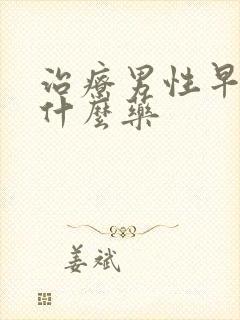 治療男性早
什麼藥
姜斌